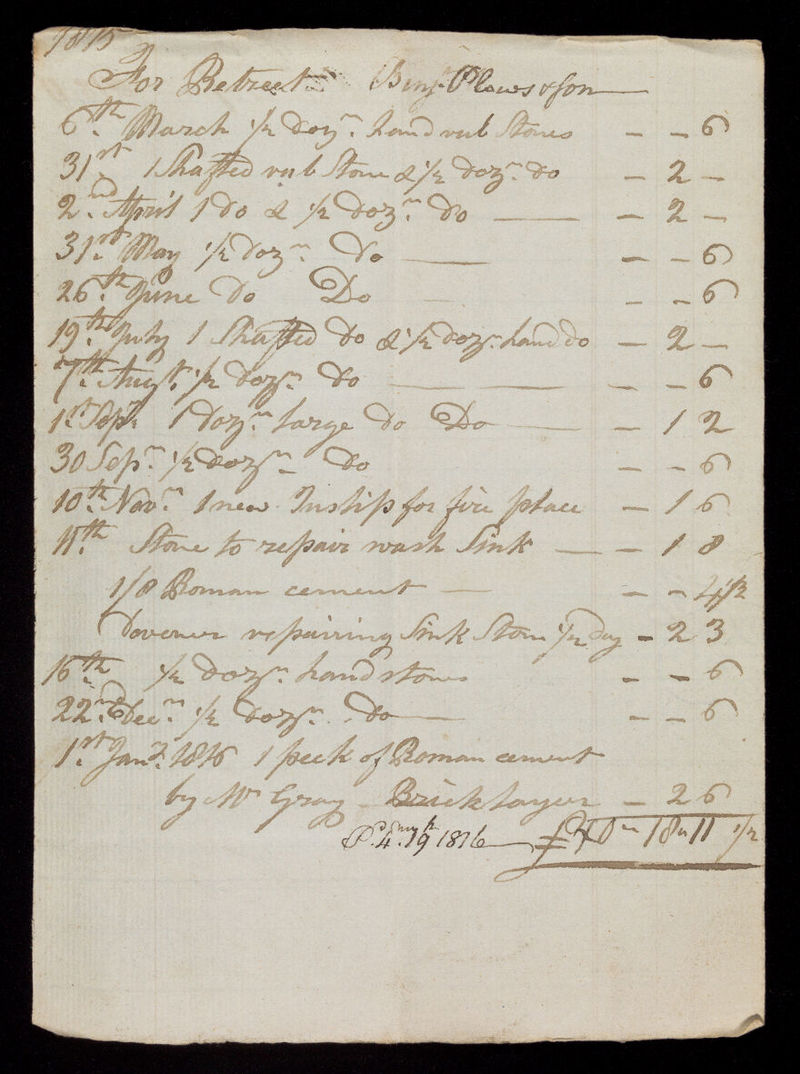 1815
For Retreat Benjn. Plows & Son
6th. March 1/2 dozn. hand rub Stones — — 6
31st 1 Shafted rub Stone & 1/2 dozn. do — 2 —
2nd. April 1 do & 1/2 dozn. do — — 2 —
31st. May 1/2 dozn. Do — — — 6
26th. June Do Do — — 6
19th. July 1 Shafted Do & 1/2 dozn. hand do — 2 —
7th. Augt. 1/2 dozn. Do — — — 6
1st Sepr. 1 Dozn. large do Do — — 1 2
30 Sepr. 1/2 dozn. Do — — 6
10th. Novr. 1 new for fire place — 1 6
11th. Stone to repair wash Sink — — 1 8
1/8 Roman cement — — — 4 1/2
repairing Sink Stone 1/2 Day — 2 3
16th 1/2 dozn. hand stones — — 6
22nd. Decr. 1/2 dozn. Do — — — 6
1st. Jany. 1816 1 peck of Roman cement
by Mr Gray Bricklayer — 2 6
Pd. 4. 19 1816 — £ 0 " 18 " 11 1/2